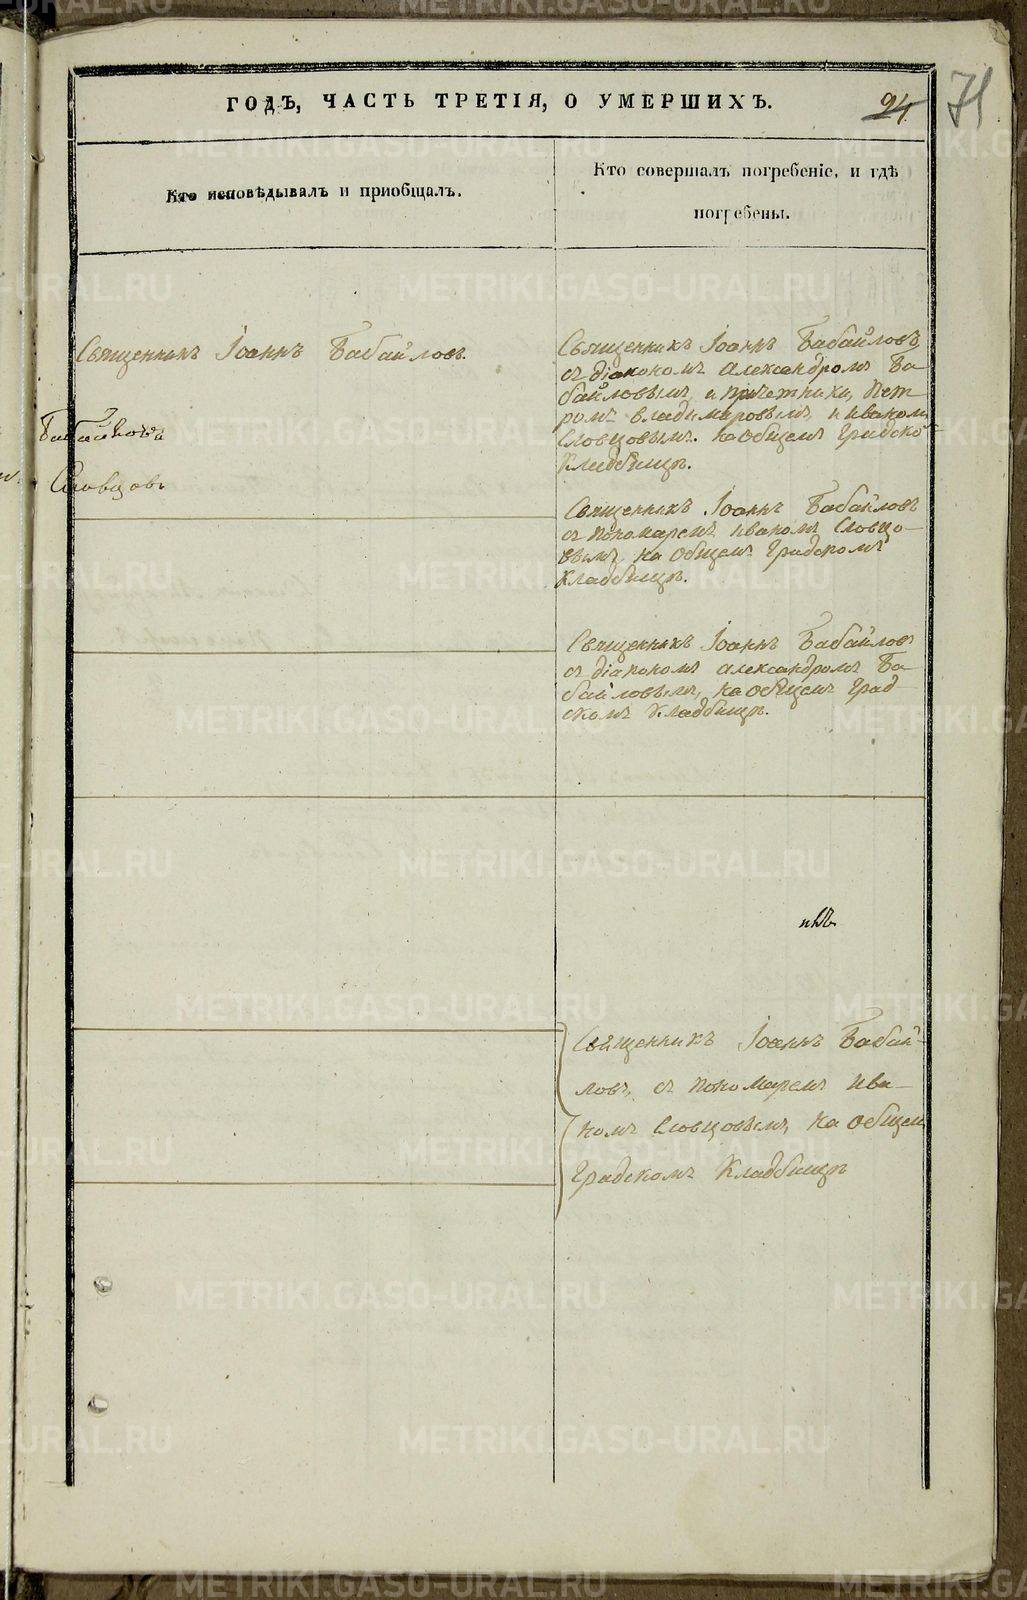 ГОДЪ, ЧАСТЬ ТРЕТІЯ, О УМЕРШИХЪ.
94
71
Кто исповѣдывалъ и пріобщалъ.
Кто совершалъ погребеніе, и гдѣ
погребены.
Священникъ Іоаннъ Бабайловъ.
Словцовъ
Священникъ Іоаннъ Бабайловъ
съ діакономъ Александромъ Ба-
байловымъ и причетники, Пет-
ромъ Владимировымъ и Иваномъ
Словцовымъ. на общемъ градско-
Кладбищѣ.
Священникъ Іоаннъ Бабайловъ
съ пономаремъ Иваномъ Словцо-
вымъ, на общемъ градскомъ
Кладбищѣ.
Священникъ Іоаннъ Бабайловъ
съ діакономъ Александромъ Ба-
байловымъ, на общемъ град-
скомъ Кладбищѣ.
Священникъ Іоаннъ Бабай-
ловъ, съ пономаремъ Ива-
номъ Словцовымъ, на общемъ
градскомъ Кладбищѣ
METRIKI.GASO-URAL.RU